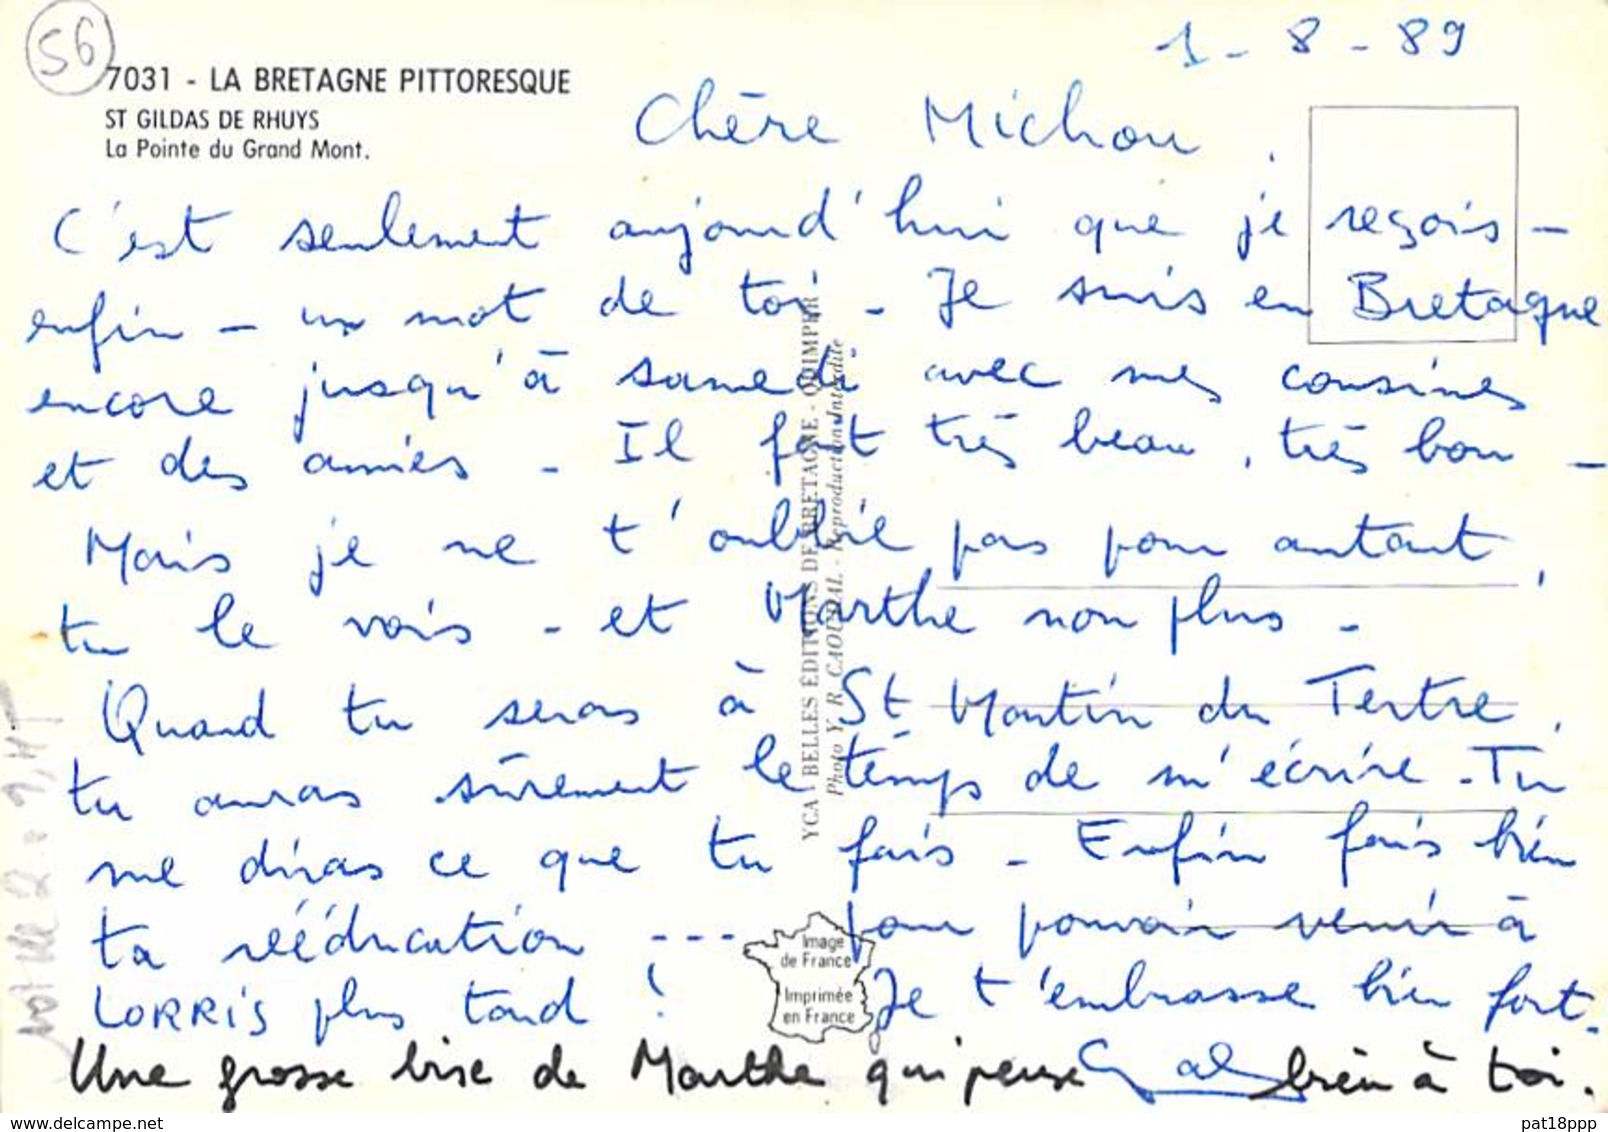 56
1-8-89
7031 - LA BRETAGNE PITTORESQUE
ST GILDAS DE RHUYS
La Pointe du Grand Mont.
Chère Michou,
C'est seulement aujourd'hui que je reçois -
enfin - un mot de toi - Je suis en Bretagne
encore jusqu'à samedi avec mes cousines
et des amies - Il fait très beau, très bon -
Mais je ne t'oublie pas pour autant,
tu le vois - et Marthe non plus -
Quand tu seras à St Martin du Tertre,
tu auras sûrement le temps de m'écrire - Tu
me diras ce que tu fais - Enfin fais bien
ta rééducation ---- pour pouvoir venir à
LORRIS plus tard ! Je t'embrasse bien fort.
Une grosse bise de Marthe qui pense bien à toi.
YCA BELLES ÉDITIONS DE BRETAGNE - QUIMPER
Photo Y. R. CAOUDAL - Reproduction Interdite
Image
de France
Imprimée
en France
www.delcampe.net
pat18ppp